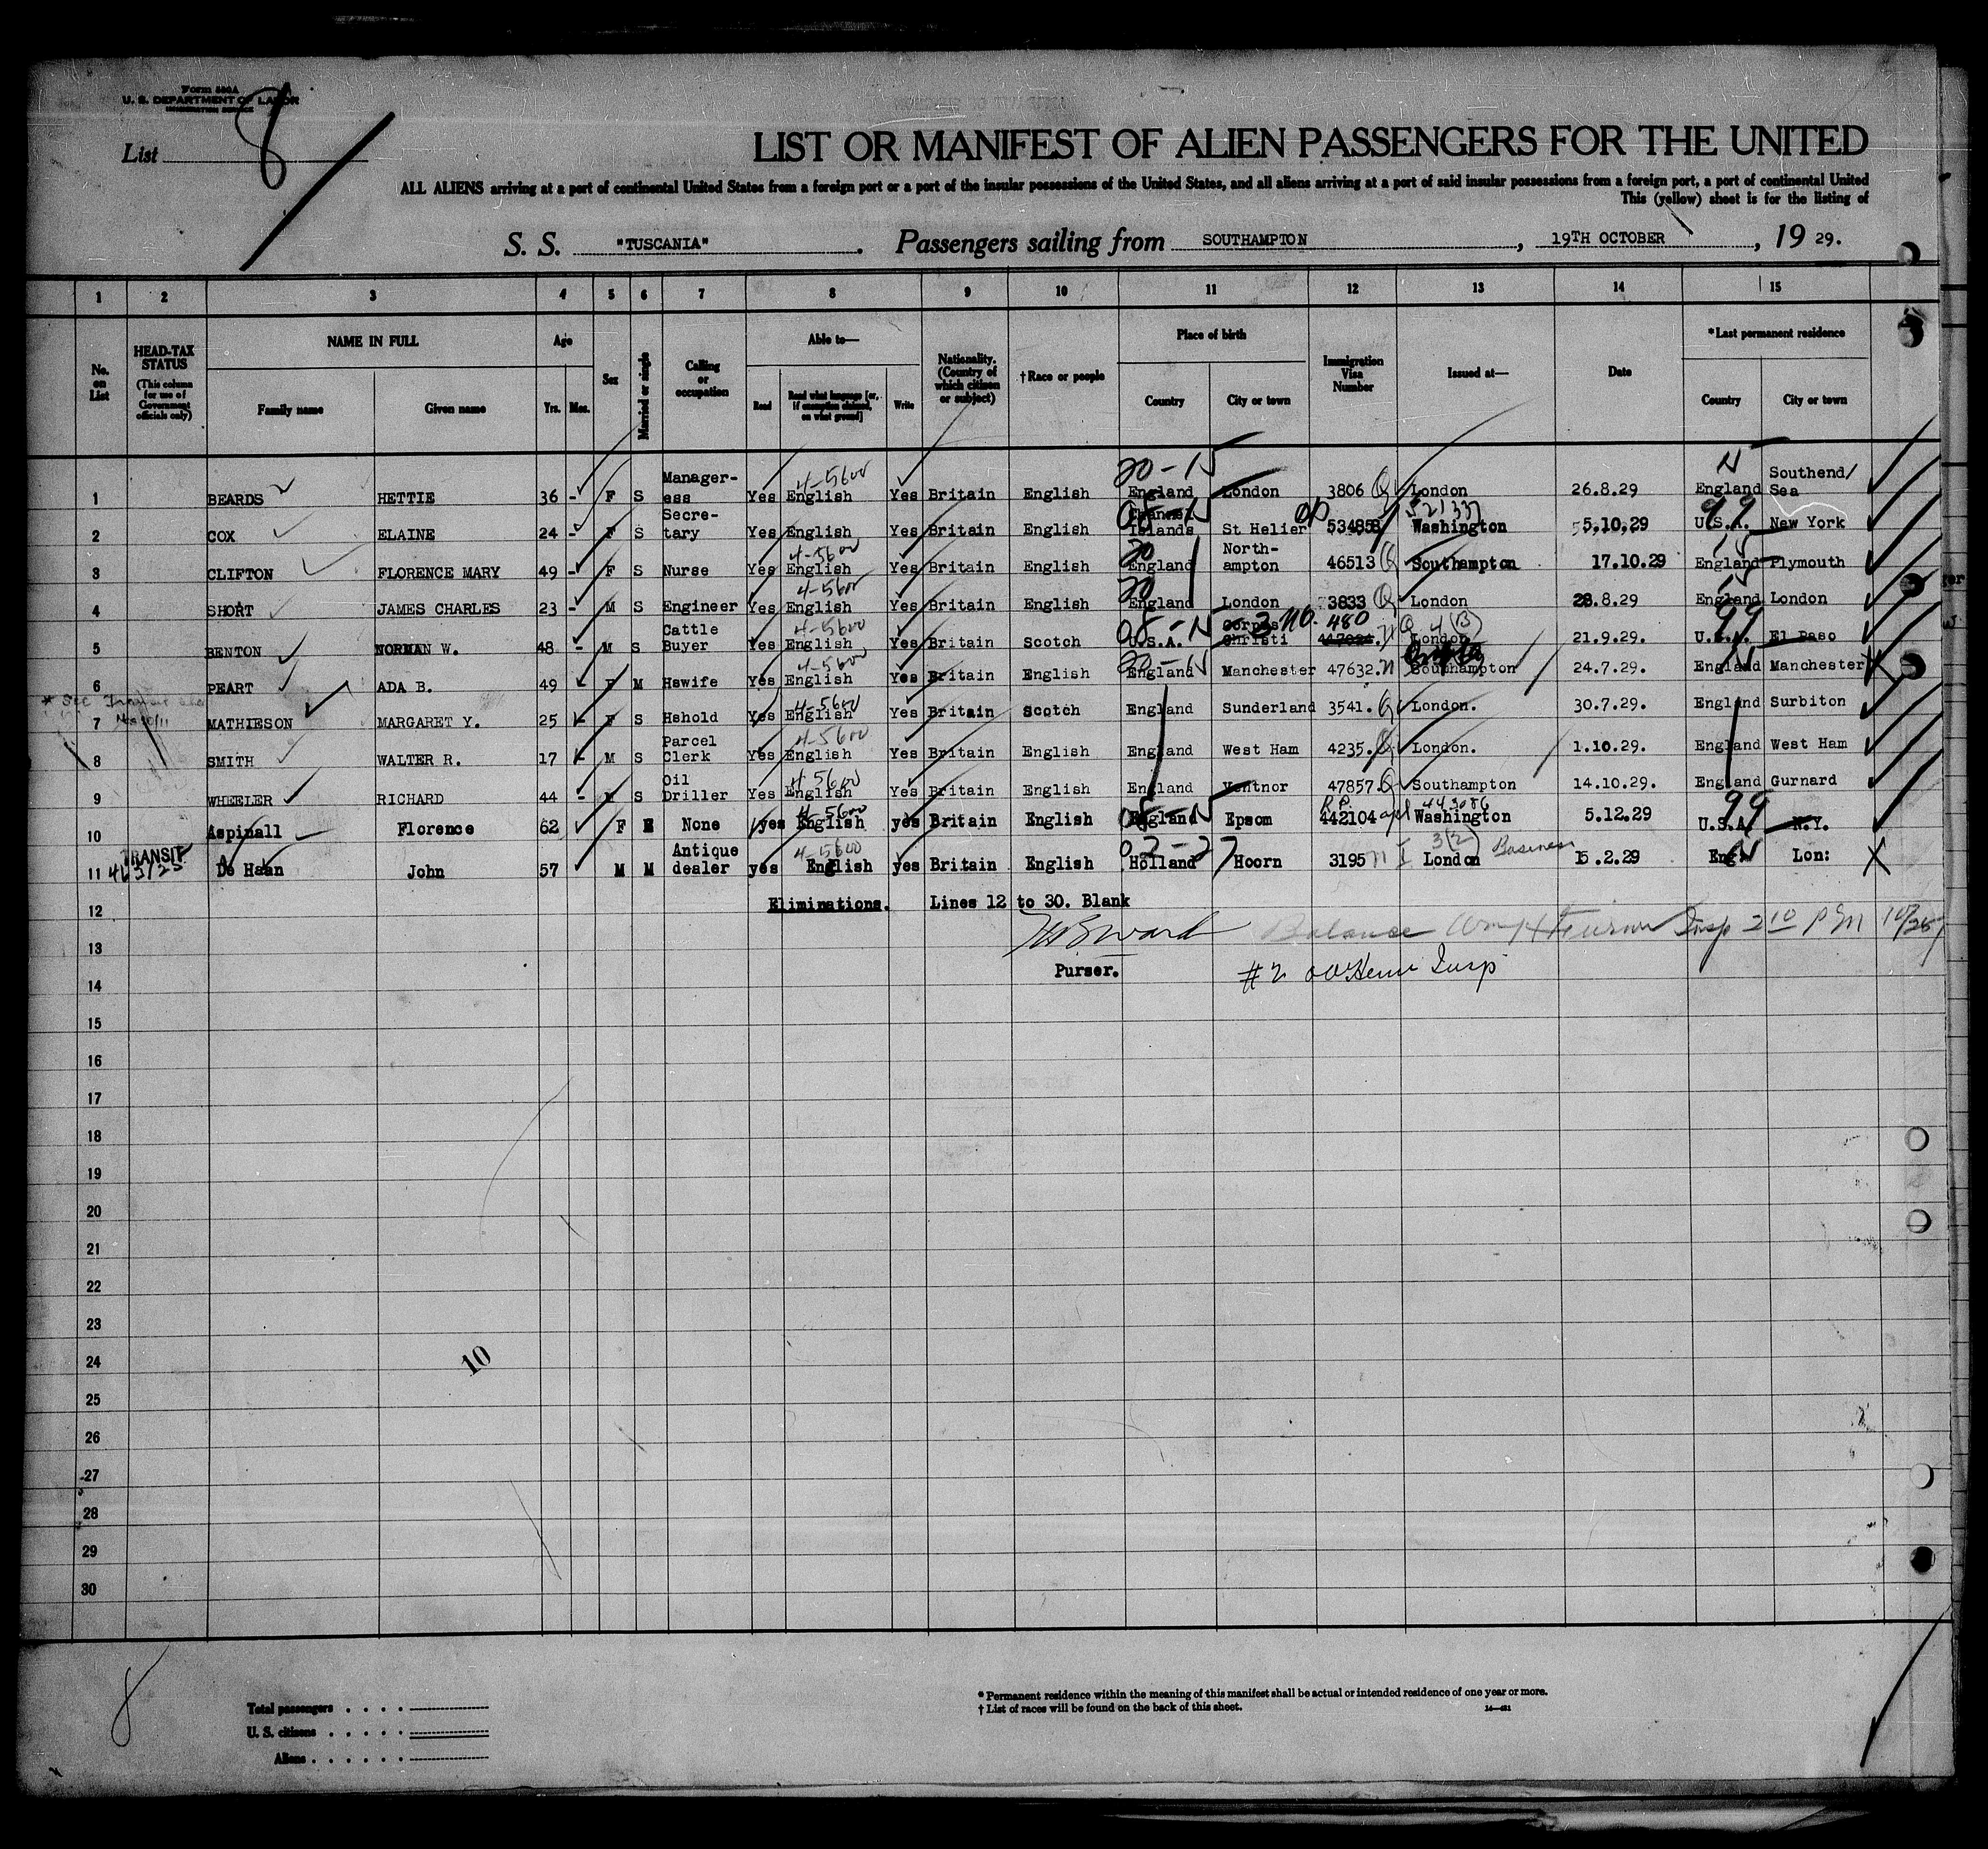 Form 500A
U. S. DEPARTMENT OF LABOR
IMMIGRATION SERVICE
List 8
LIST OR MANIFEST OF ALIEN PASSENGERS FOR THE UNITED
ALL ALIENS arriving at a port of continental United States from a foreign port or a port of the insular possessions of the United States, and all aliens arriving at a port of said insular possessions from a foreign port, a port of continental United
This (yellow) sheet is for the listing of
S. S. "TUSCANIA". Passengers sailing from SOUTHAMPTON, 19TH OCTOBER, 19 29.
1 2 3 4 5 6 7 8 9 10 11 12 13 14 15
No. on List
HEAD-TAX STATUS (This column for use of Government officials only)
NAME IN FULL Family name Given name
Age Yrs. Mos.
Sex
Married or single
Calling or occupation
Able to— Read Read what language [or, if exemption claimed, on what ground] Write
Nationality. (Country of which citizen or subject)
†Race or people
Place of birth Country City or town
Immigration Visa Number
Issued at—
Date
*Last permanent residence Country City or town
1 BEARDS HETTIE 36 - F S Manager-ess Yes English 4-5600 Yes Britain English England 20-N London 3806 Q London 26.8.29 England N Southend/Sea
2 COX ELAINE 24 - F S Secre-tary Yes English Yes Britain English Channel Islands St Helier 53485 Washington 5.10.29 U.S.A. 99 New York
3 CLIFTON FLORENCE MARY 49 - F S Nurse Yes English 4-5600 Yes Britain English England 20 North-ampton 46513 Q Southampton 17.10.29 England N Plymouth
4 SHORT JAMES CHARLES 23 - M S Engineer Yes English 4-5600 Yes Britain English England 20 London 3833 Q London 28.8.29 England N London
5 BENTON NORMAN W. 48 - M S Cattle Buyer Yes English 4-5600 Yes Britain Scotch U.S.A. Corpus Christi 480 London 4(B) 21.9.29 U.S.A. 99 El Paso
6 PEART ADA B. 49 - F M Hswife Yes English 4-5600 Yes Britain English England 20-N Manchester 47632. Southampton 24.7.29. England N Manchester
7 MATHIESON MARGARET Y. 25 - F S Hshold Yes English 4-5600 Yes Britain Scotch England Sunderland 3541. Q London. 30.7.29. England Surbiton
8 SMITH WALTER R. 17 - M S Parcel Clerk Yes English 4-5600 Yes Britain English England West Ham 4235. Q London. 1.10.29. England West Ham
9 WHEELER RICHARD 44 - M S Oil Driller Yes English 4-5600 Yes Britain English England Ventnor 47857 Q Southampton 14.10.29. England Gurnard
10 Aspinall Florence 62 F None yes English 4-5600 yes Britain English England Epsom R.P. 442104 443086 Washington 5.12.29 U.S.A. 99 N.Y.
11 TRANSIT De Haan John 57 M M Antique dealer yes English 4-5600 yes Britain English Holland Hoorn 3195 London 3(2) Business 15.2.29 Eng: N Lon:
12 Eliminations. Lines 12 to 30. Blank
13
Purser.
14
15
16
17
18
19
20
21
22
23
24
10
25
26
27
28
29
30
8
Total passengers
U. S. citizens
Aliens
* Permanent residence within the meaning of this manifest shall be actual or intended residence of one year or more.
† List of races will be found on the back of this sheet.